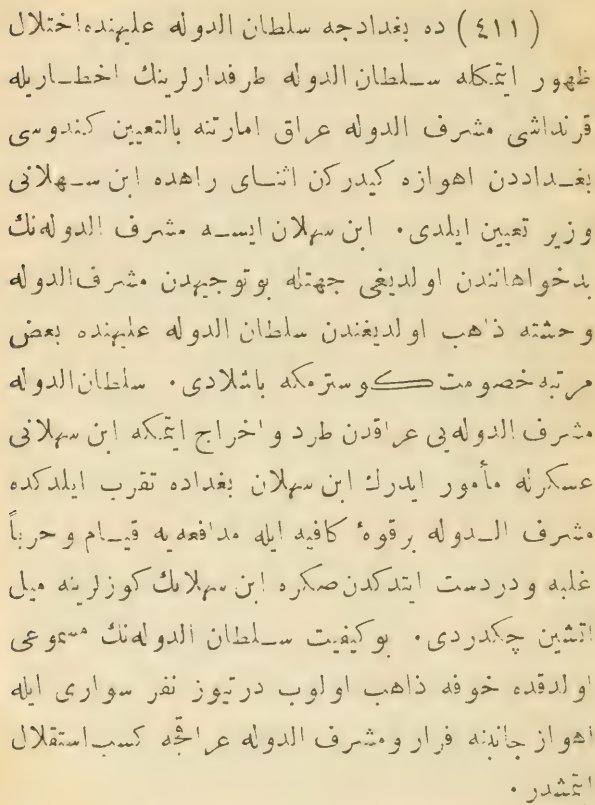 (٤١١) ده بغدادجه سلطان الدوله علیهنده اختلال
ظهور ایتمکله سلطان الدوله طرفدارلرینك اخطاریله
قرنداشی مشرف الدوله عراق امارتنه بالتعیین کندوسی
بغداددن اهوازه کیدرکن اثنای راهده ابن سهلانی
وزیر تعیین ایلدی. ابن سهلان ایسه مشرف الدوله‌نك
بدخواهانندن اولدیغی جهتله بو توجیهدن مشرف الدوله
وحشته ذاهب اولدیغندن سلطان الدوله علیهنده بعض
مرتبه خصومت کوسترمکه باشلادی. سلطان الدوله
مشرف الدوله‌یی عراقدن طرد و اخراج ایتمکه ابن سهلانی
عسکرله مأمور ایدرك ابن سهلان بغداده تقرب ایلدکده
مشرف الدوله بر قوهٔ کافیه ایله مدافعه‌یه قیام و حرباً
غلبه ودردست ایتدکدن صکره ابن سهلانك کوزلرینه میل
اتشین چکدردی. بوکیفیت سلطان الدوله‌نك مسموعی
اولدقده خوفه ذاهب اولوب درتیوز نفر سواری ایله
اهواز جانبنه فرار ومشرف الدوله عراقجه کسب استقلال
ایتمشدر.